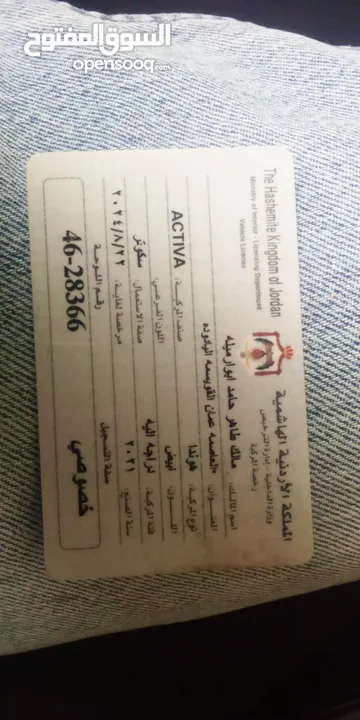 السوق المفتوح
opensooq.com
المملكة الأردنية الهاشمية
The Hashemite Kingdom of Jordan
وزارة الداخلية - إدارة الترخيص
Ministry of Interior - Licensing Department
رخصة المركبة
Vehicle License
اسم المالك: مالك طاهر حامد ابوارميله
العنوان: العاصمه عمان القويسمه
نوع المركبة: هوندا
صنف المركبة: ACTIVA
اللون: ابيض
اللون الفرعي:
فئة المركبة: دراجه اليه
صفة الاستعمال: سكوتر
سنة الصنع: ٢٠٢١
مرخصة لغاية: ٢٠٢٤/٨/٢٢
صفة التسجيل
رقم اللوحة
خصوصي
46-28366